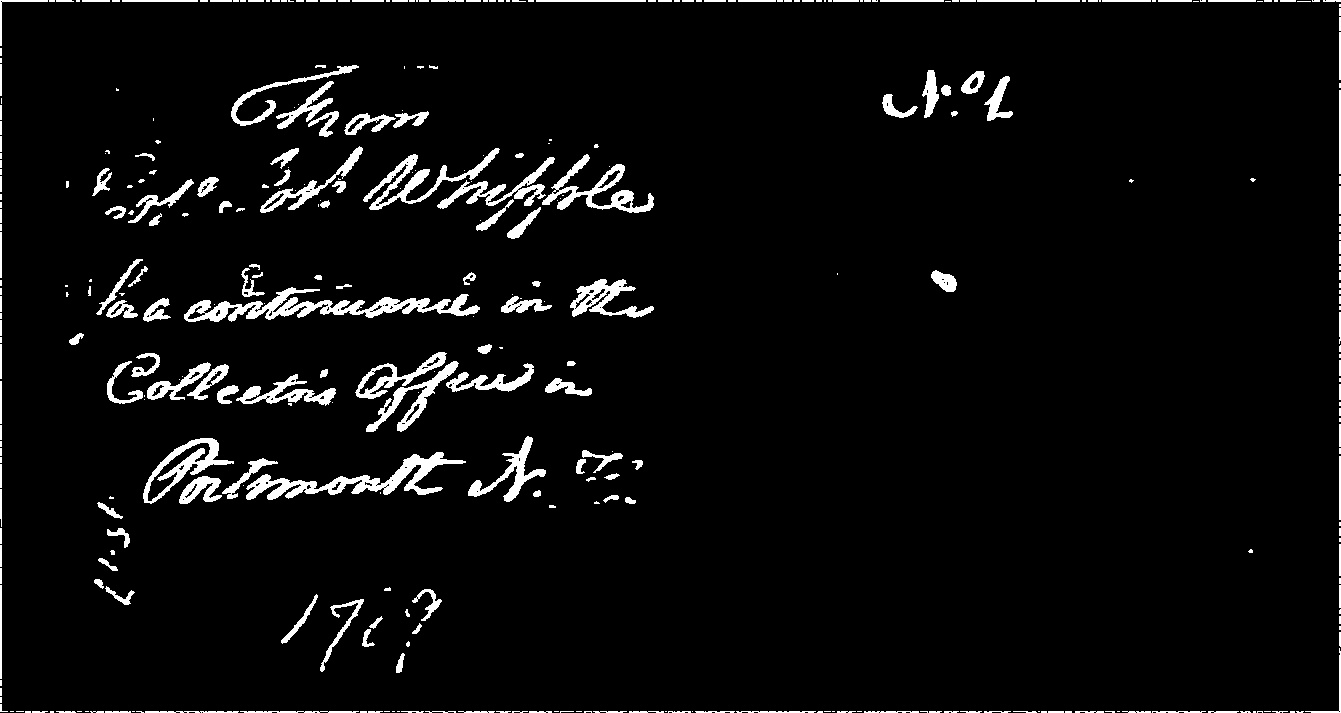 From
Whipple
for a continuance in the
Collector's Office in
Portsmouth N.
No. 1